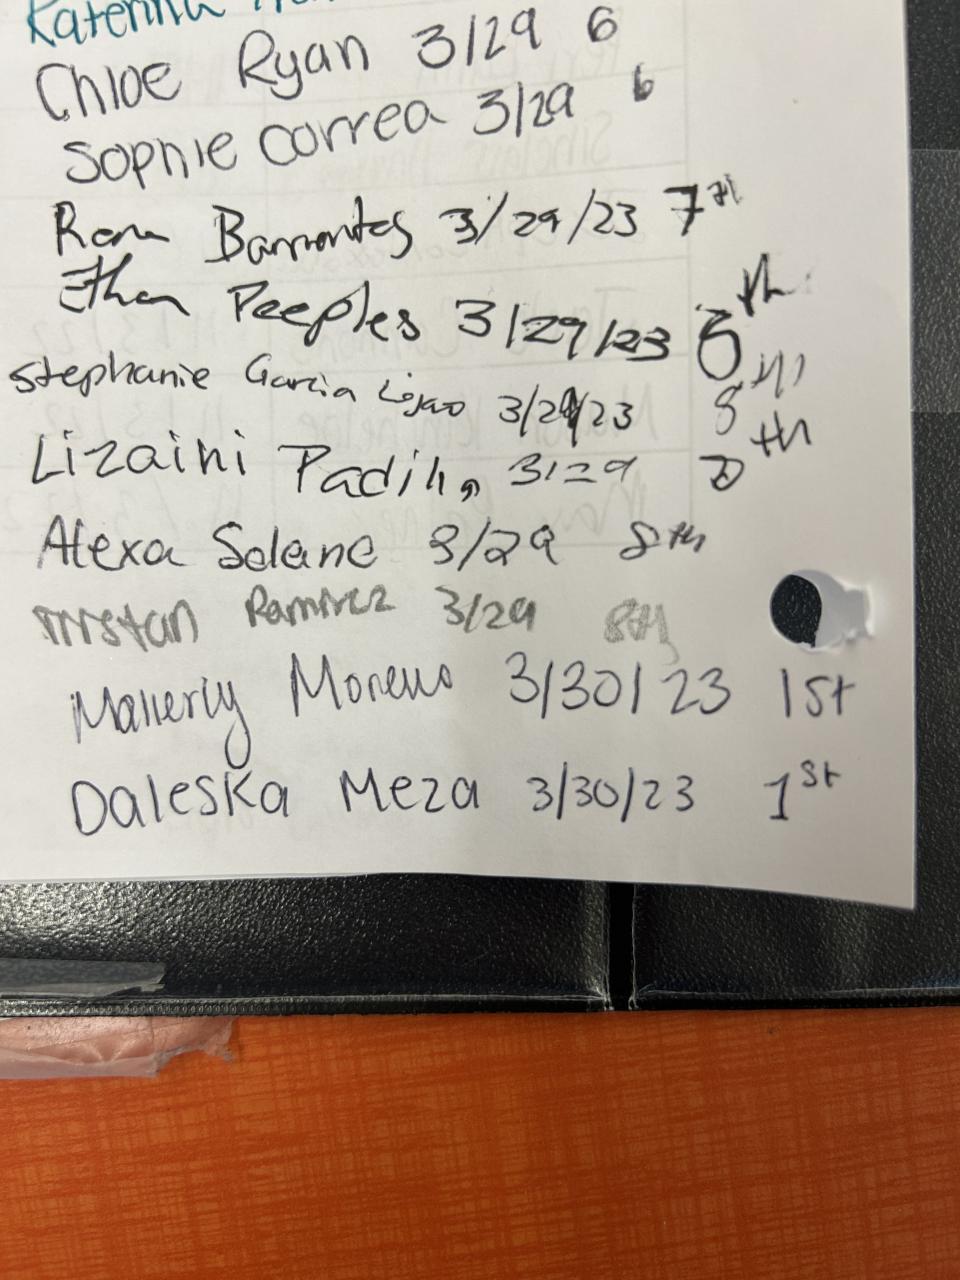 Katerina
Chloe Ryan 3/29 6
Sophie Correa 3/29 6
Barrantes 3/29/23 7th
Ethan Peeples 3/29/23 th
Stephanie Garcia 3/29/23 8th
Lizaini Padilla 3/29 th
Alexa Solano 3/29 8th
Tristan Ramirez 3/29 8th
Moreno 3/30/23 1st
Daleska Meza 3/30/23 1st